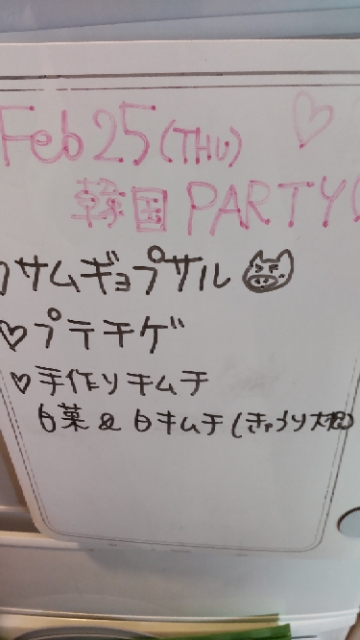 Feb 25 (THU)
韓国 PARTY
サムギョプサル
♡プテチゲ
♡手作りキムチ
白菜 & 白キムチ (きゅうり大根)